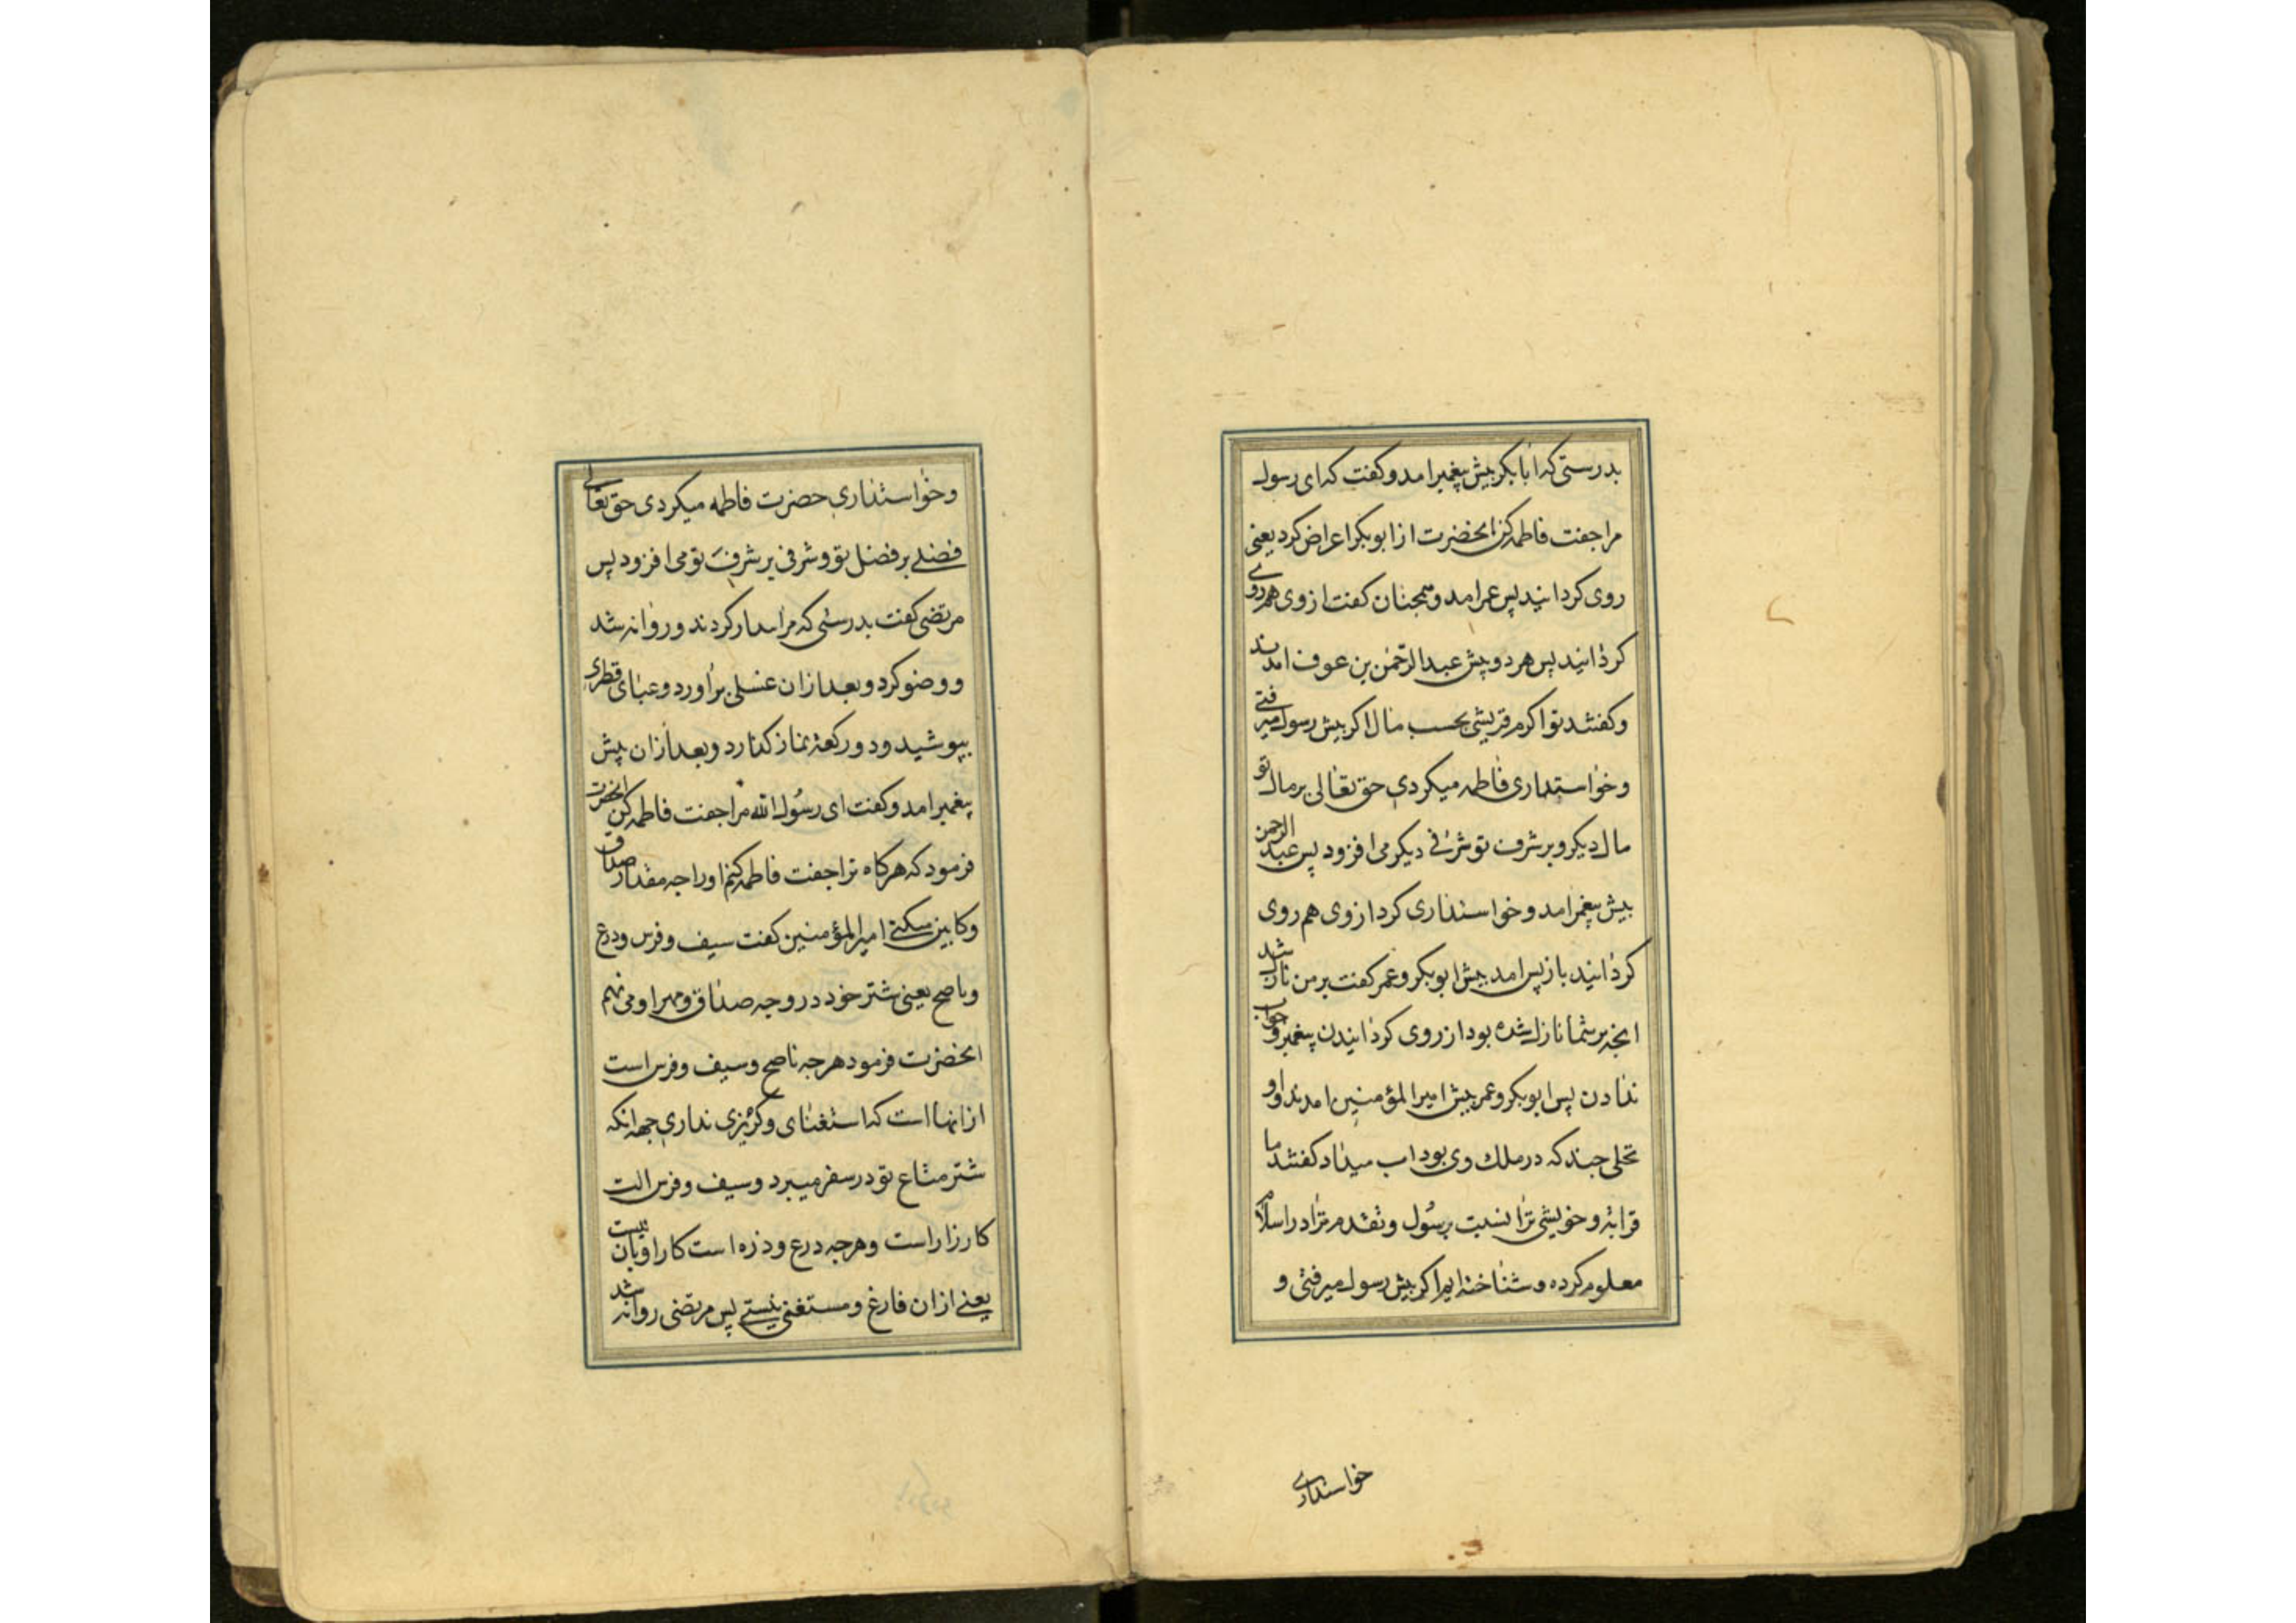 بدرستی که ابابکر پیش پیغمبر امد و کفت که ای رسول
مرا جفت فاطمه کن انحضرت از ابوبکر اعراض کرد یعنی
روی کردانید پس عمر امد و همچنان کفت از وی هم روی
کردانید پس هر دو پیش عبدالرحمن بن عوف امدند
و کفتند تو اکرم قریشی بحسب مال اکر پیش رسول میرفتی
و خواستداری فاطمه میکردی حق تعالی بر مال تو
مال دیکر و بر شرف تو شرفی دیکر می افزود پس عبد الرحمن
پیش پیغمبر امد و خواستداری کرد از وی هم روی
کردانید باز پس امد پیش ابوبکر و عمر کفت بر من نازل شد
انچه بر شما نازل شده بود از روی کردانیدن پیغمبر و جواب
ندادن پس ابوبکر و عمر پیش امیر المؤمنین امدند و او
نخلی چند که در ملک وی بود اب میداد کفتند ما
قرابة و خویشی ترا نسبت برسول و تقدم ترا در اسلام
معلوم کرده و شناخته ایم اکر پیش رسول میرفتی و
خواستداری
و خواستداری حضرت فاطمه میکردی حق تعالی
فضلی بر فضل تو و شرفی بر شرف تو می افزود پس
مرتضی کفت بدرستی که مرا بیدار کردند و روانه شد
و وضو کرد و بعد از ان غسلی براورد و عبای قطری
بپوشید و دو رکعة نماز کذارد و بعد ازان پیش
پیغمبر امد و کفت ای رسول الله مرا جفت فاطمه کن انحضرت
فرمود که هرکاه ترا جفت فاطمه کنم او را چه مقدار صداق
و کابین میکنی امیر المؤمنین کفت سیف و فرس و درع
و ناضح یعنی شتر خود در وجه صداق و مهر او می نهم
انحضرت فرمود هرچه ناضح و سیف و فرس است
از انها است که استغنای و کریزی نداری جهة انکه
شتر متاع تو در سفر میبرد و سیف و فرس الت
کارزار است و هرچه درع و ذره است کار او بان نیست
یعنی از ان فارغ و مستغنی نیستی پس مرتضی روانه شد